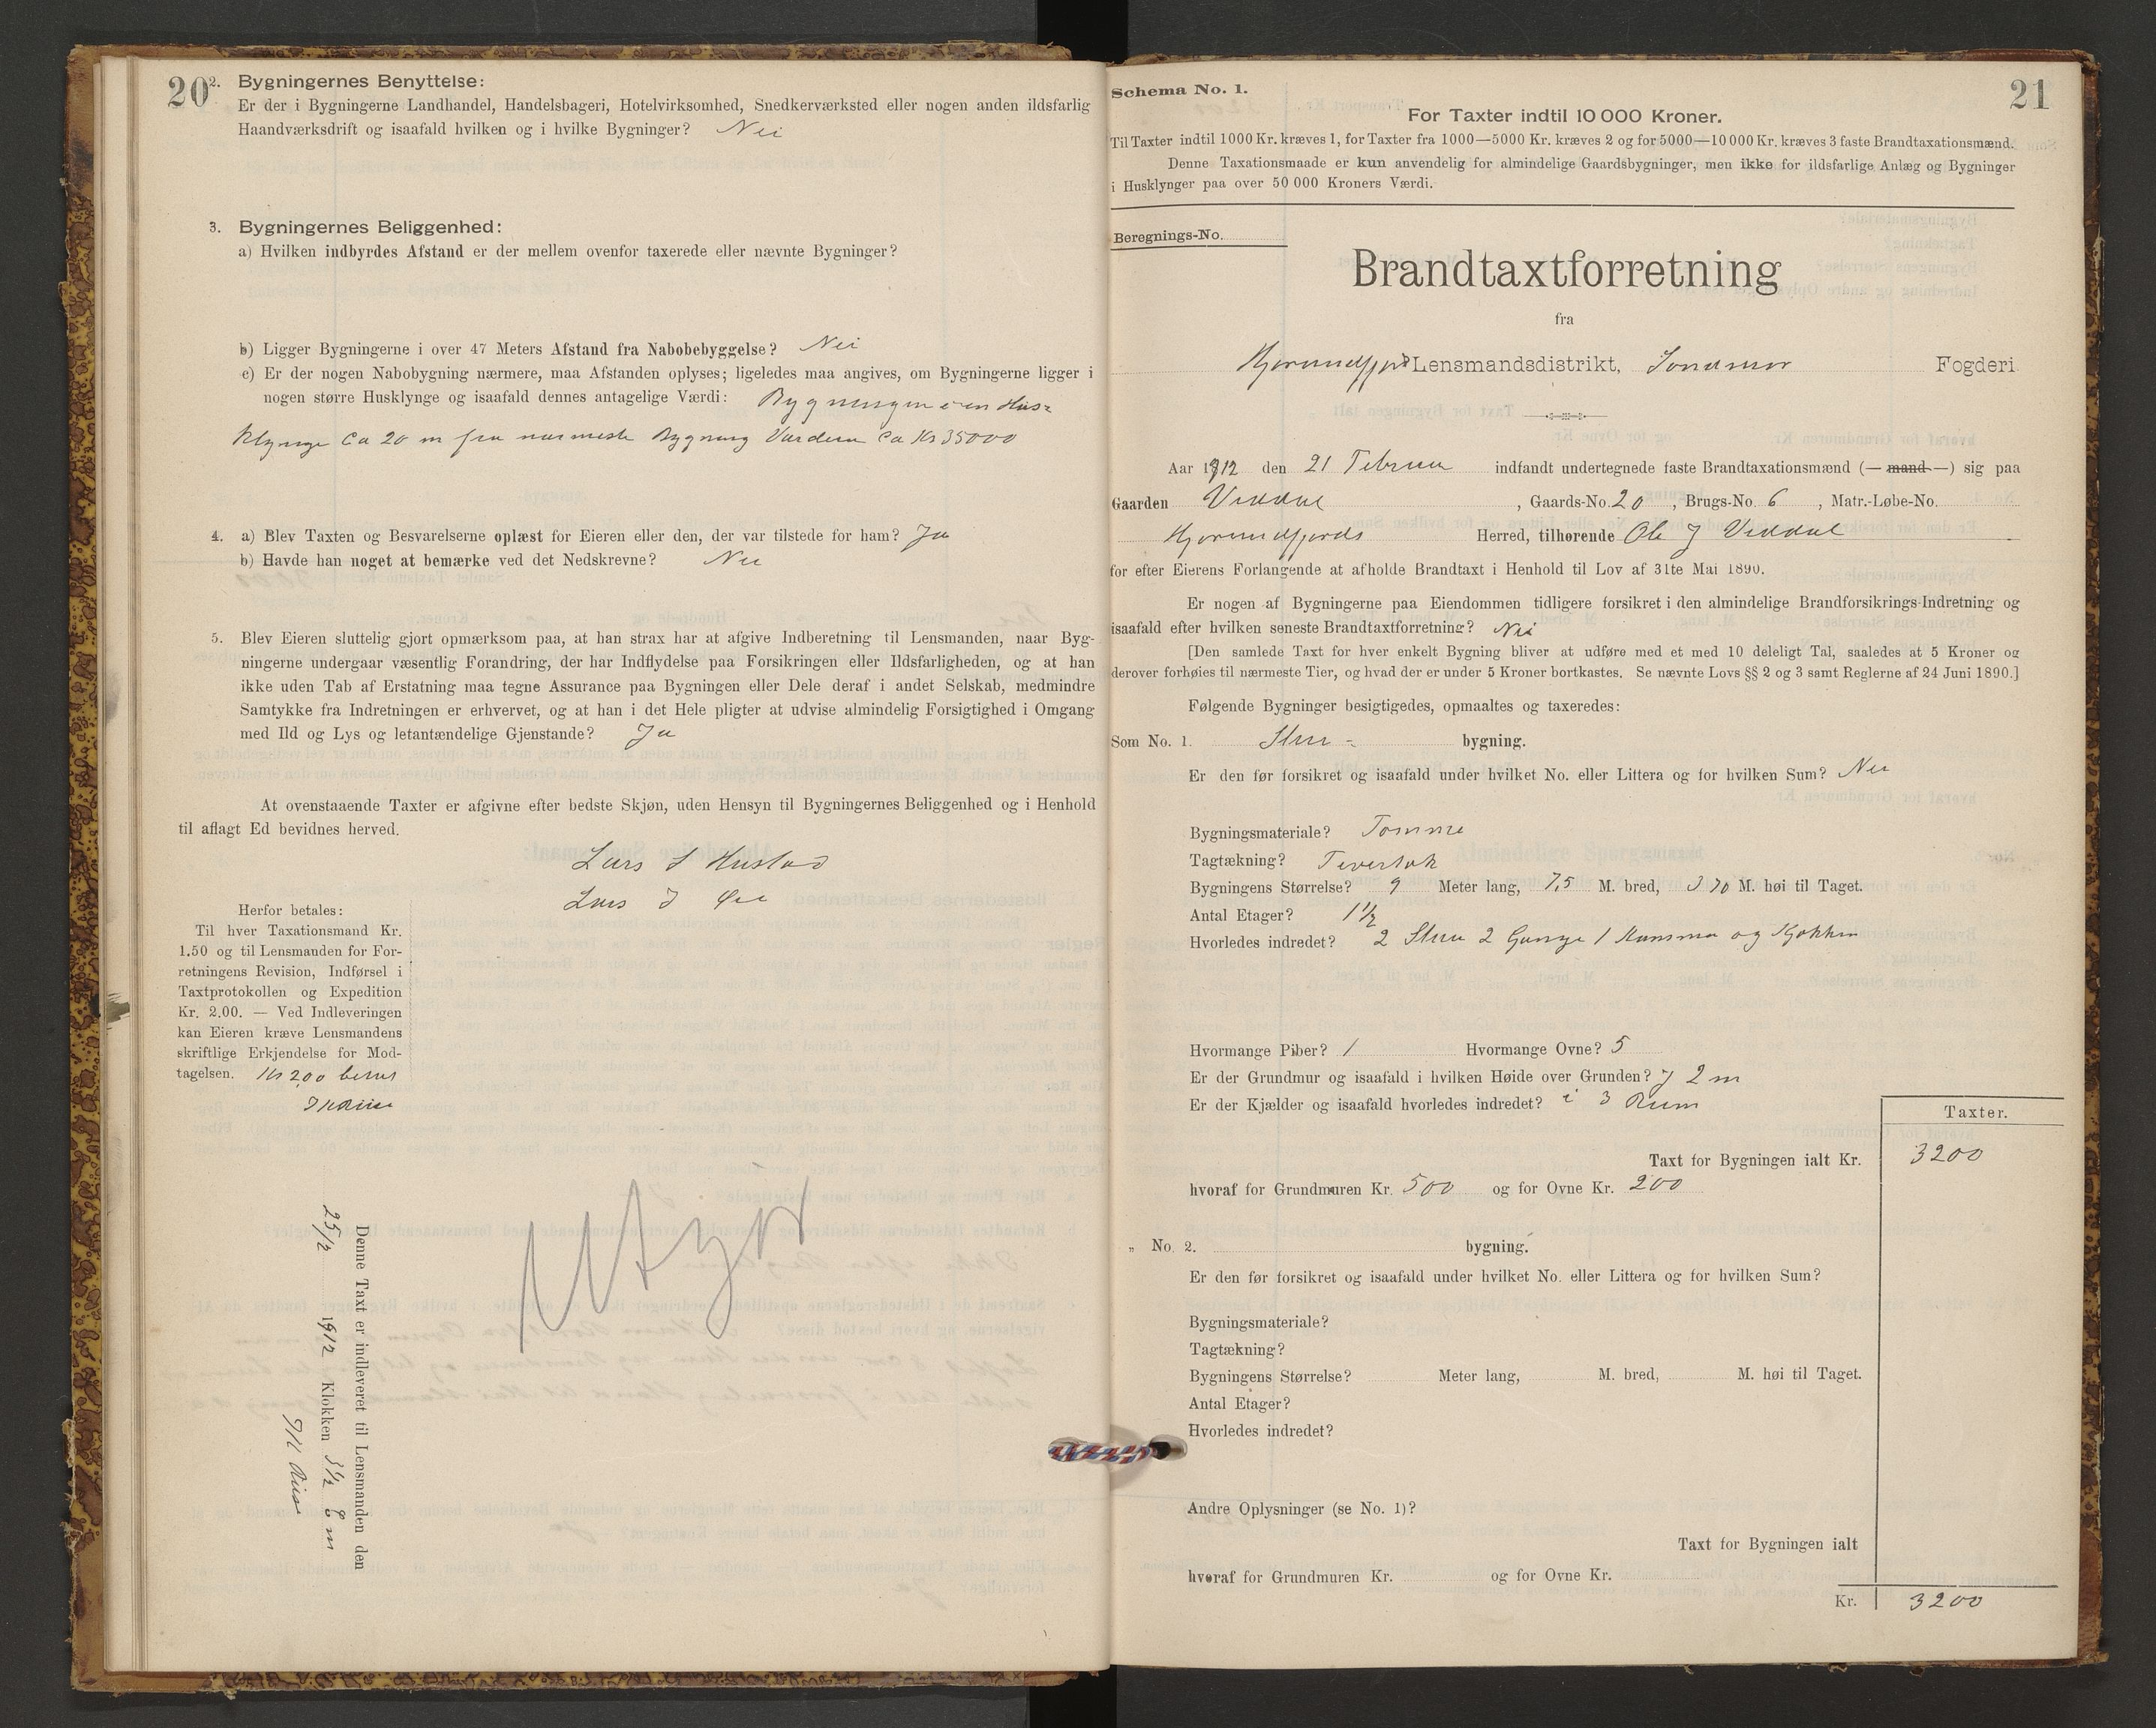 20
2. Bygningernes Benyttelse:
Er der i Bygningerne Landhandel, Handelsbageri, Hotelvirksomhed, Snedkerværksted eller nogen anden ildsfarlig
Haandværksdrift og isaafald hvilken og i hvilke Bygninger? Nei
3. Bygningernes Beliggenhed:
a) Hvilken indbyrdes Afstand er der mellem ovenfor taxerede eller nævnte Bygninger?
b) Ligger Bygningerne i over 47 Meters Afstand fra Nabobebyggelse? Nei
c) Er der nogen Nabobygning nærmere, maa Afstanden oplyses; ligeledes maa angives, om Bygningerne ligger i
nogen større Husklynge og isaafald dennes antagelige Værdi: Bygningen i en Hus-
klynge Ca 20 m fra nærmeste Bygning Værdien Ca Kr 35000
4. a) Blev Taxten og Besvarelserne oplæst for Eieren eller den, der var tilstede for ham? Ja
b) Havde han noget at bemærke ved det Nedskrevne? Nei
5. Blev Eieren sluttelig gjort opmærksom paa, at han strax har at afgive Indberetning til Lensmanden, naar Byg-
ningerne undergaar væsentlig Forandring, der har Indflydelse paa Forsikringen eller Ildsfarligheden, og at han
ikke uden Tab af Erstatning maa tegne Assurance paa Bygningen eller Dele deraf i andet Selskab, medmindre
Samtykke fra Indretningen er erhvervet, og at han i det Hele pligter at udvise almindelig Forsigtighed i Omgang
med Ild og Lys og letantændelige Gjenstande? Ja
At ovenstaaende Taxter er afgivne efter bedste Skjøn, uden Hensyn til Bygningernes Beliggenhed og i Henhold
til aflagt Ed bevidnes herved.
Lars L Hustad
Lars J Øie
Herfor betales:
Til hver Taxationsmand Kr.
1.50 og til Lensmanden for For-
retningens Revision, Indførsel i
Taxtprotokollen og Expedition
Kr. 2.00. — Ved Indleveringen
kan Eieren kræve Lensmandens
skriftlige Erkjendelse for Mod-
tagelsen. Kr 2,00 betalt
Denne Taxt er indleveret til Lensmanden den
25/2 1912 Klokken 3 1/2 Em
Utgaat
Schema No. 1.
21
For Taxter indtil 10 000 Kroner.
Til Taxter indtil 1000 Kr. kræves 1, for Taxter fra 1000—5000 Kr. kræves 2 og for 5000—10 000 Kr. kræves 3 faste Brandtaxationsmænd.
Denne Taxationsmaade er kun anvendelig for almindelige Gaardsbygninger, men ikke for ildsfarlige Anlæg og Bygninger
i Husklynger paa over 50 000 Kroners Værdi.
Beregnings-No.
Brandtaxtforretning
fra
Hjørundfjord Lensmandsdistrikt, Søndmør Fogderi
Aar 1912 den 21 Februar indfandt undertegnede faste Brandtaxationsmænd (— mand —) sig paa
Gaarden Viddal, Gaards-No. 20, Brugs-No. 6, Matr.-Løbe-No.
Hjørundfjords Herred, tilhørende Ole J Viddal
for efter Eierens Forlangende at afholde Brandtaxt i Henhold til Lov af 31te Mai 1890.
Er nogen af Bygningerne paa Eiendommen tidligere forsikret i den almindelige Brandforsikrings-Indretning og
isaafald efter hvilken seneste Brandtaxtforretning? Nei
[Den samlede Taxt for hver enkelt Bygning bliver at udføre med et med 10 deleligt Tal, saaledes at 5 Kroner og
derover forhøies til nærmeste Tier, og hvad der er under 5 Kroner bortkastes. Se nævnte Lovs §§ 2 og 3 samt Reglerne af 24 Juni 1890.]
Følgende Bygninger besigtigedes, opmaaltes og taxeredes:
Som No. 1. Stue- bygning.
Er den før forsikret og isaafald under hvilket No. eller Littera og for hvilken Sum? Nei
Bygningsmateriale? Tømmer
Tagtækning? Tivertak
Bygningens Størrelse? 9 Meter lang, 7,5 M. bred, 3 70 M. høi til Taget.
Antal Etager? 1 1/2
Hvorledes indredet? 2 Stuer 2 Gange 1 Kammer og Kjøkken
Hvormange Piber? 1 Hvormange Ovne? 5
Er der Grundmur og isaafald i hvilken Høide over Grunden? J 2 m
Er der Kjælder og isaafald hvorledes indredet? i 3 Rum
Taxter.
Taxt for Bygningen ialt Kr. 3200
hvoraf for Grundmuren Kr. 500 og for Ovne Kr. 200
„ No. 2. bygning.
Er den før forsikret og isaafald under hvilket No. eller Littera og for hvilken Sum?
Bygningsmateriale?
Tagtækning?
Bygningens Størrelse? Meter lang, M. bred, M. høi til Taget.
Antal Etager?
Hvorledes indredet?
Andre Oplysninger (se No. 1)?
Taxt for Bygningen ialt
hvoraf for Grundmuren Kr. og for Ovne Kr.
Kr. 3200